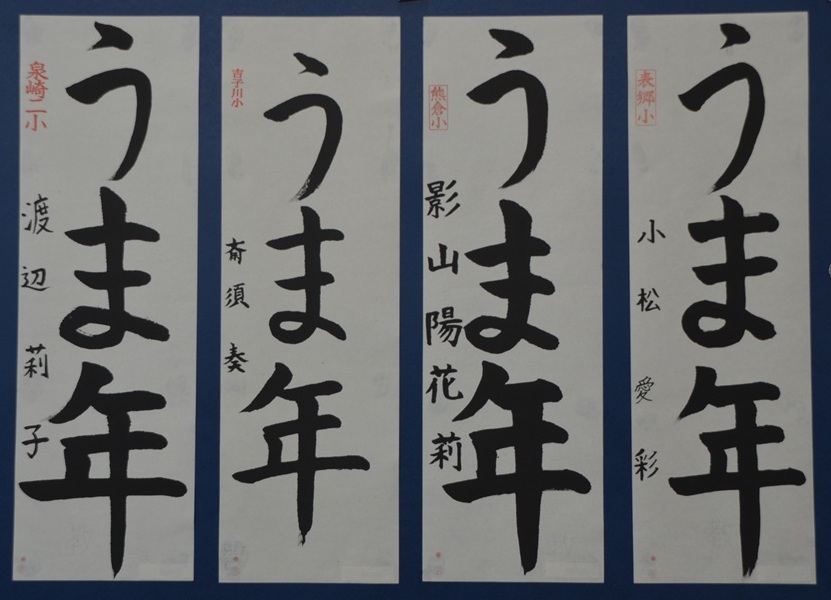 表郷小
うま年
小松愛彩
熊倉小
うま年
影山陽花莉
吉子川小
うま年
斎須奏
泉崎二小
うま年
渡辺莉子